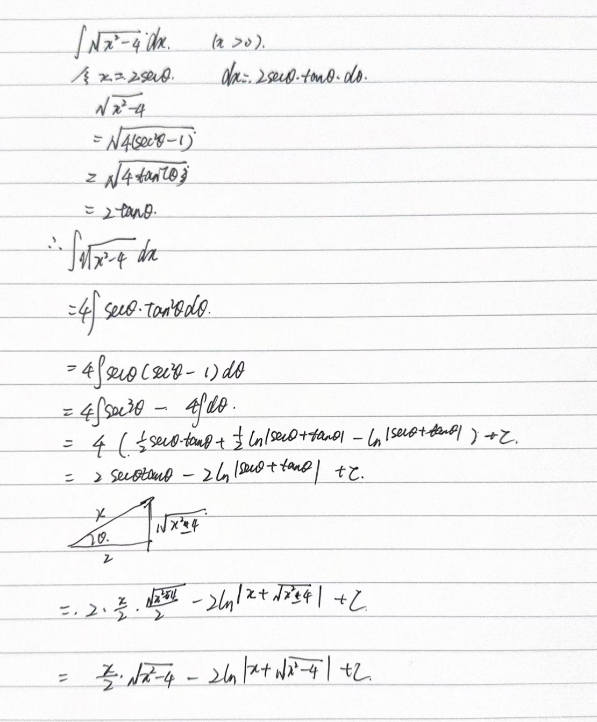 ∫√(x²-4) dx. (x>0).
令 x=2secθ. dx=2secθ·tanθ·dθ.
√(x²-4)
=√(4(sec²θ-1))
=√(4tan²(θ))
=2tanθ.
∴ ∫√(x²-4) dx
=4∫secθ·tan²θdθ.
=4∫secθ(sec²θ-1)dθ
=4∫sec³θ - 4∫dθ.
=4(½secθ·tanθ+½ln|secθ+tanθ|-ln|secθ+tanθ|)+C.
=2secθtanθ-2ln|secθ+tanθ|+C.
x √(x²-4)
θ.
2
=2·x/2·√(x²-4)/2-2ln|x+√(x²-4)|+C
=x/2·√(x²-4)-2ln|x+√(x²-4)|+C.